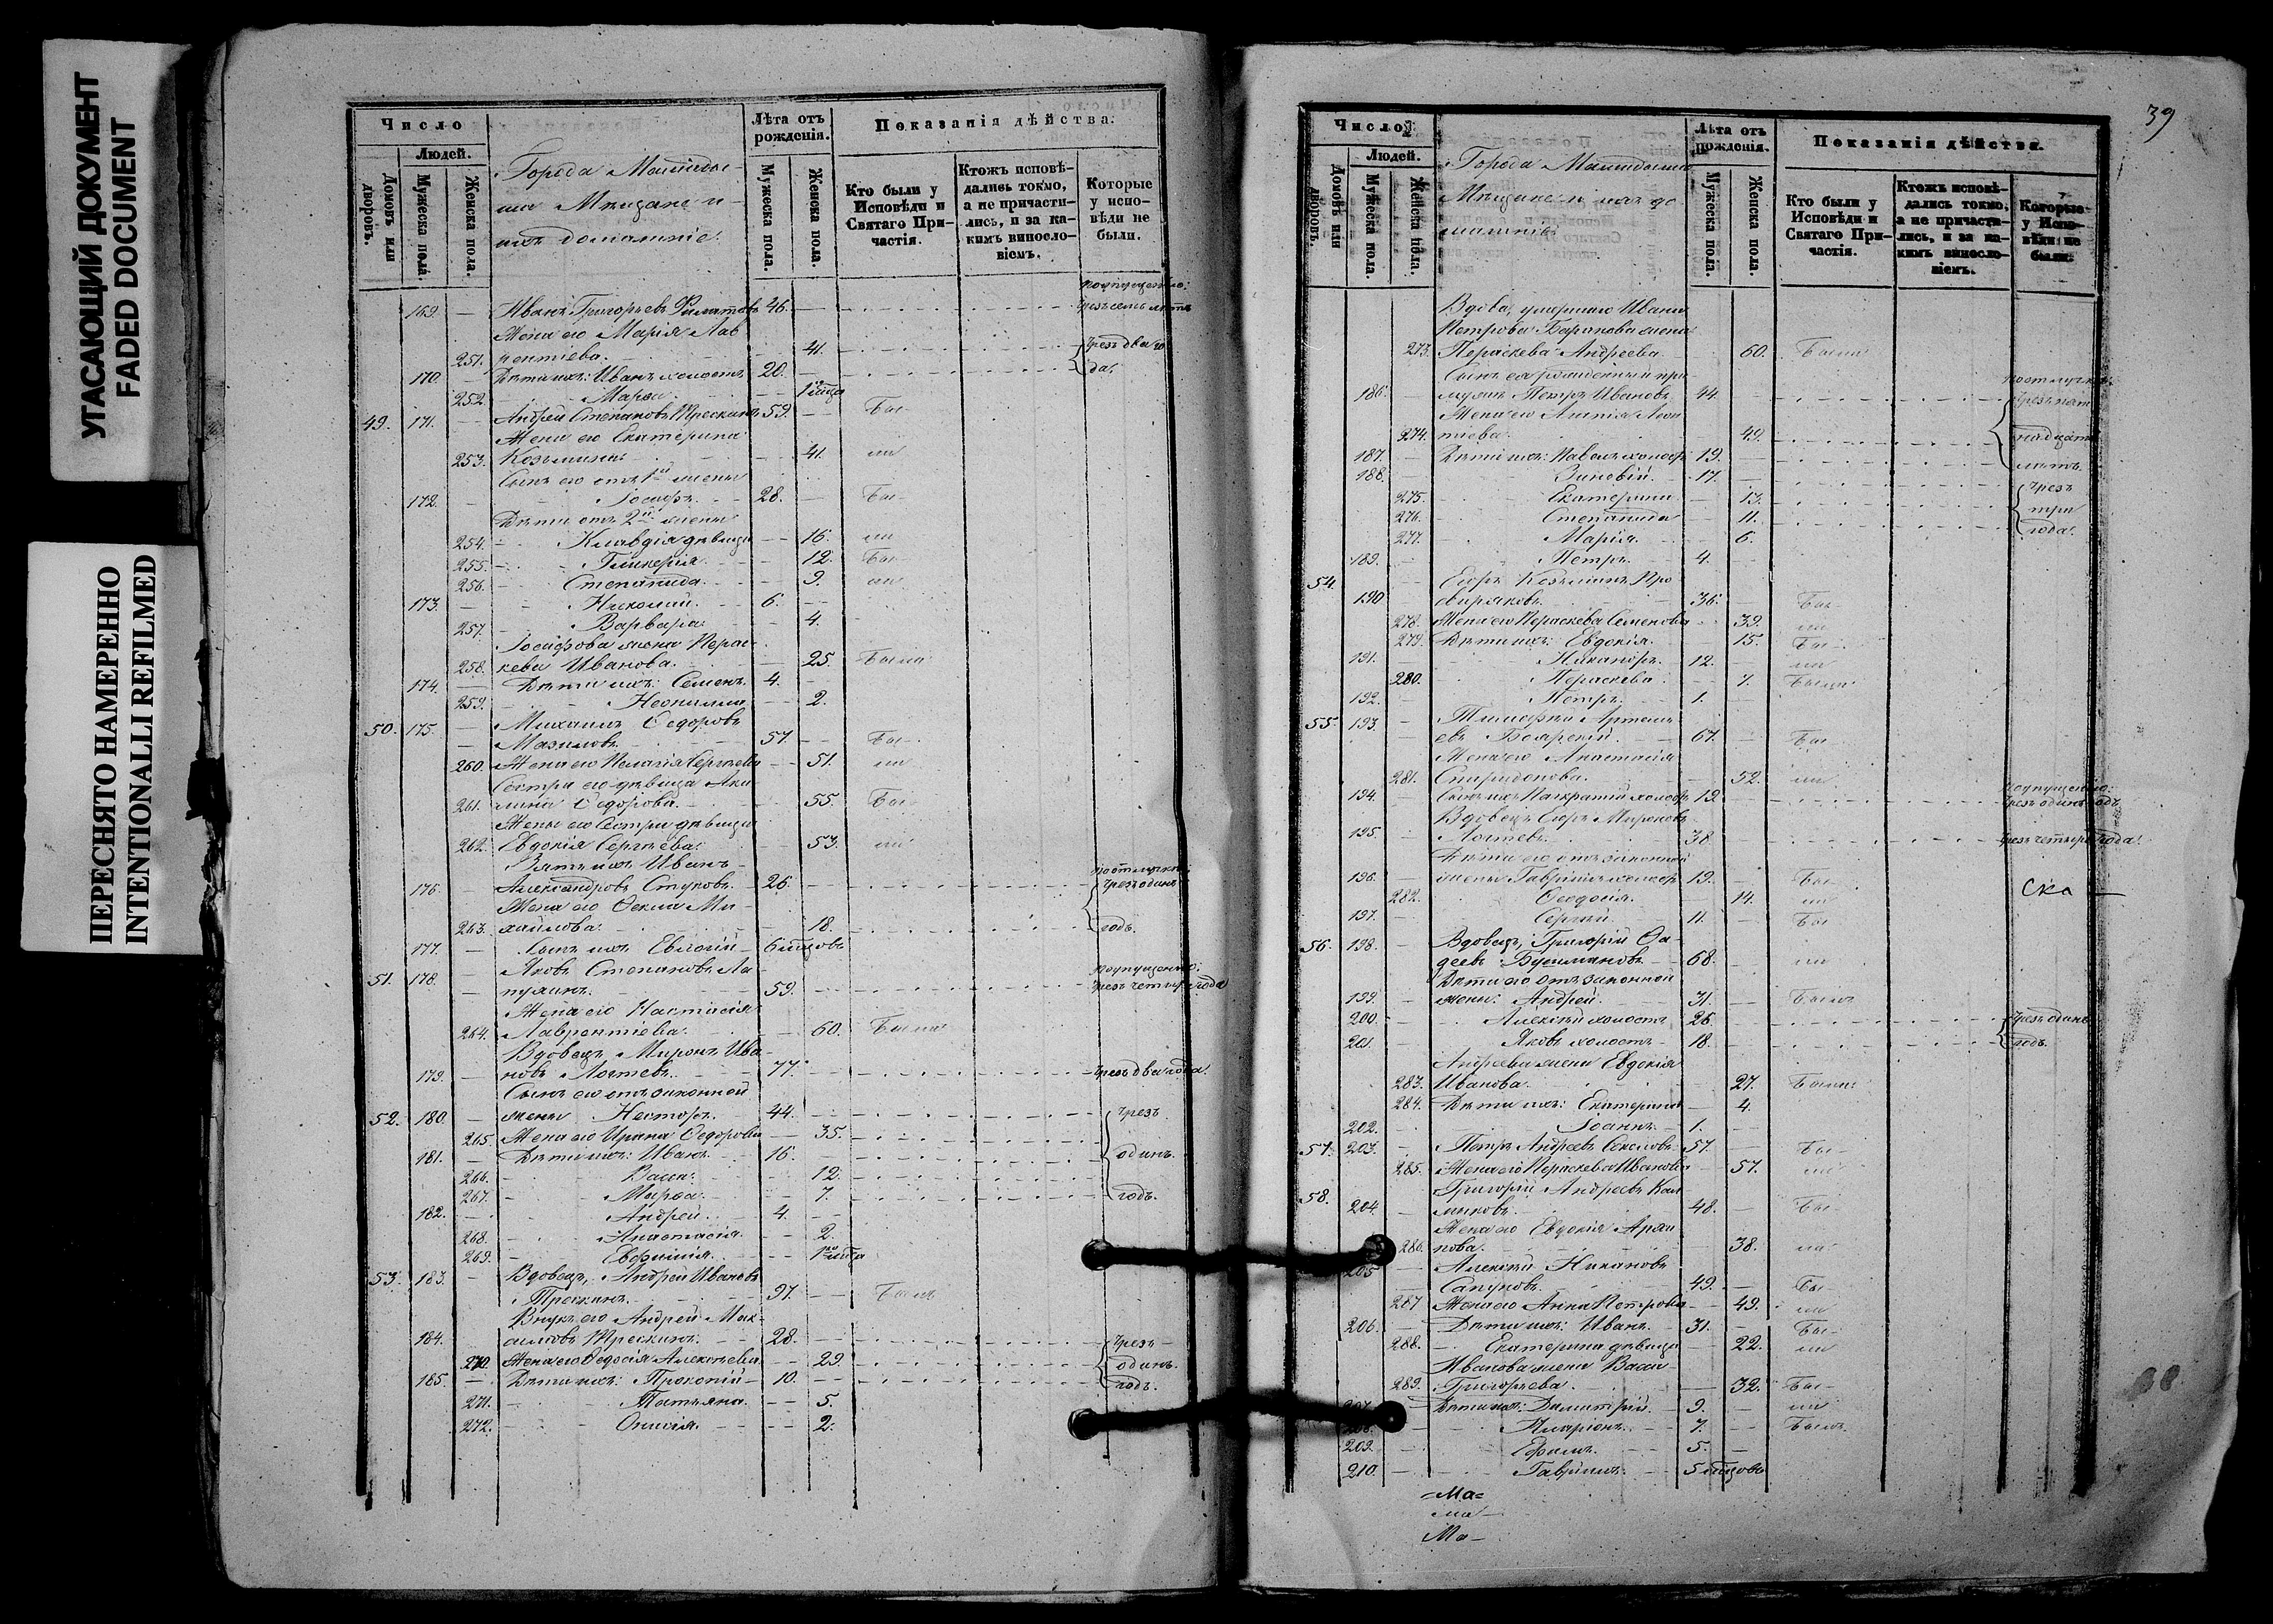 УГАСАЮЩИЙ ДОКУМЕНТ
FADED DOCUMENT
ПЕРЕСНЯТО НАМЕРЕННО
INTENTIONALLI REFILMED
Число
Людей.
Домовъ или дворовъ.
Мужеска пола.
Женска пола.
Города
Мѣщане и
ихъ домашніе.
Лѣта отъ рожденія.
Мужеска пола.
Женска пола.
Показанія дѣйства.
Кто были у Исповѣди и Святаго Причастія.
Ктожъ исповѣдались токмо, а не причастились, и за какимъ винословіемъ.
Которые у исповѣди не были.
169. — Иванъ Григорьевъ Филатовъ 46.
Жена его Марія Лав
251. рентіева. 41. чрезъ два го
170. Дѣти ихъ: Иванъ холостъ 20. да.
252. Марѳа.
49. 171. Андрей Степановъ Трескинъ 59. Бы-
Жена его Екатерина
253. Козьмина. 41. ли
Сынъ его отъ 1й жены
172. Іосифъ. 28. Бы-
Дѣти отъ 2й жены
254. Клавдія дѣвица 16. ли
255. Гликерія. 12. Бы-
256. Степанида. 9. ли
173. Николай. 6.
257. Варвара. 4.
Іосифова жена Парас-
258. кева Иванова. 25. Была
174. Дѣти ихъ: Семенъ. 4.
259. Неонилла 2.
50. 175. Михаилъ Ѳедоровъ
Мазиловъ. 57. Бы-
260. Жена его Пелагія Сергѣева 51. ли
Сестра его дѣвица Аку
261. лина Ѳедорова. 55. Бы-
Жены его Сестра дѣвица
262. Евдокія Сергѣева. 53. ли
Зять ихъ Иванъ
176. Александровъ Стуковъ. 26. чрезъ одинъ
Жена его Ѳекла Ми-
263. хайлова. 18. годъ.
177. Сынъ ихъ Евлогій 6 мѣсцовъ
51. 178. Яковъ Степановъ Ла-
59. чрезъ четыре года
Жена его Настасія
264. Лаврентіева. 60. Была
Вдовецъ Миронъ Ива-
179. новъ Логтевъ. 77. чрезъ два года.
Сынъ его отъ законной
52. 180. жены Несторъ. 44. чрезъ
265. Жена его Ирина Ѳедорова 35.
181. Дѣти ихъ: Иванъ. 16. одинъ.
266. Васса. 12.
267. Марѳа. 7. годъ.
182. Андрей. 4.
268. Анастасія. 2.
269. Евфимія.
53. 183. Вдовецъ, Андрей Ивановъ
Трескинъ. 97. Былъ
Внукъ его Андрей Мак-
184. симовъ Трескинъ. 28. чрезъ
270. Жена его Ѳедосія Алексѣева 29. одинъ.
185. Дѣти ихъ: Прокопій 10. годъ.
271. Татьяна. 5.
272. Онисія. 2.
39
Число
Людей.
Домовъ или дворовъ.
Мужеска пола.
Женска пола.
Города
Мѣщане и ихъ до
машніе
Лѣта отъ рожденія.
Мужеска пола.
Женска пола.
Показанія дѣйства.
Кто были у Исповѣди и Святаго Причастія.
Ктожъ исповѣдались токмо, а не причастились, и за какимъ винословіемъ.
Которые у Исповѣди не были.
Вдова, умершаго Ивана
Петрова Баранова жена
273. Параскева Андреева 60. Была
Сынъ ея рожденный при
186. мужѣ Петръ Ивановъ 44.
274. тіева. 49.
187. Дѣти ихъ: Павелъ холостъ 19. лѣтъ.
188. Зиновій. 17.
275. Екатерина 13. чрезъ
276. Степанида 11. три
277. Марія. 6. года.
189. Петръ. 4.
54. Егоръ Козьминъ Про
190. 36. Бы-
278. Жена его Параскева Семенова 39. ли
279. Дѣти ихъ: Евдокія. 15. Бы-
191. Никаноръ. 12. ли
280. Параскева 7. Была
192. Петръ. 1.
55. 193. Тимоѳей Артемь
евъ Боярской. 67. Бы-
Жена его Анастасія
281. Спиридонова. 52. ли
194. Сынъ ихъ Панкратій холостъ 19. чрезъ одинъ годъ
195. Логтевъ. 38. чрезъ четыре года.
Дѣти его отъ законной
196. жены Гавріилъ холостъ 19. Бы-
282. Ѳеодосія. 14. ли
197. Сергій. 11. Бы-
Ска
56. 198. Вдовецъ, Григорій Ѳа-
деевъ Бушмановъ 68. ли
Дѣти его отъ законной
199. жены: Андрей. 31. Былъ
200. Алексѣй холостъ 26. чрезъ одинъ
201. Яковъ холостъ 18. годъ.
Андреева жена Евдокія
283. Иванова. 27. Была
284. Дѣти ихъ: Екатерина 4.
202. Іоаннъ. 1.
57. 203. Петръ Андреевъ 57. Бы-
285. Жена его Параскева Иванова 57. ли
58. Григорій Андреевъ Кал
204. мыковъ. 48. Бы-
Жена его Евдокія
286. нова. 38. ла
205. Алексѣй Никановъ
Сапуновъ. 49. Бы-
287. Жена его Анна Петрова 49. ли
206. Дѣти ихъ: Иванъ. 31. Бы-
288. Екатерина дѣвица 22. ли
Иванова жена Васса
289. Григорьева. 32. Бы-
Дѣти ихъ: Димитрій. 9. ли
Иларіонъ. 7. Былъ
209. Ефимъ. 5.
210. Гавріилъ. 5 мѣсцовъ
=Ма=
ма-
Ма-